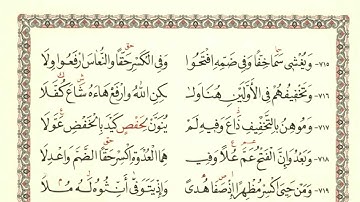 ٧١٥ وَيُغْشِي سَمَا خِفًّا وَفِي ضَمِّهِ افْتَحُوا وَفِي الْكَسْرِ حَقًّا وَالنُّعَاسَ ارْفَعُوا وِلَا
٧١٦ وَتَخْفِيفُهُمْ فِي الْأَوَّلَيْنِ هُنَا وَلَٰـ كِنِ اللَّهُ وَارْفَعْ هَاءَهُ شَاعَ كُفَّلَا
٧١٧ وَمُوهِنُ بِالتَّخْفِيفِ ذَاعَ وَفِيهِ لَمْ يُنَوَّنْ لِحَفْصٍ كَيْدَ بِالْخَفْضِ عَوَّلَا
٧١٨ وَبَعْدُ وَإِنَّ الْفَتْحُ عَمَّ عُلًا وَفِيـ ـهِمَا الْعُدْوَةِ اكْسِرْ حَقًّا الضَّمَّ وَاعْدِلَا
٧١٩ وَمَنْ حَيِيَ اكْسِرْ مُظْهِرًا إِذْ صَفَا هُدًى وَإِذْ يَتَوَفَّى أَنِّثُوهُ لَهُ مُلَا